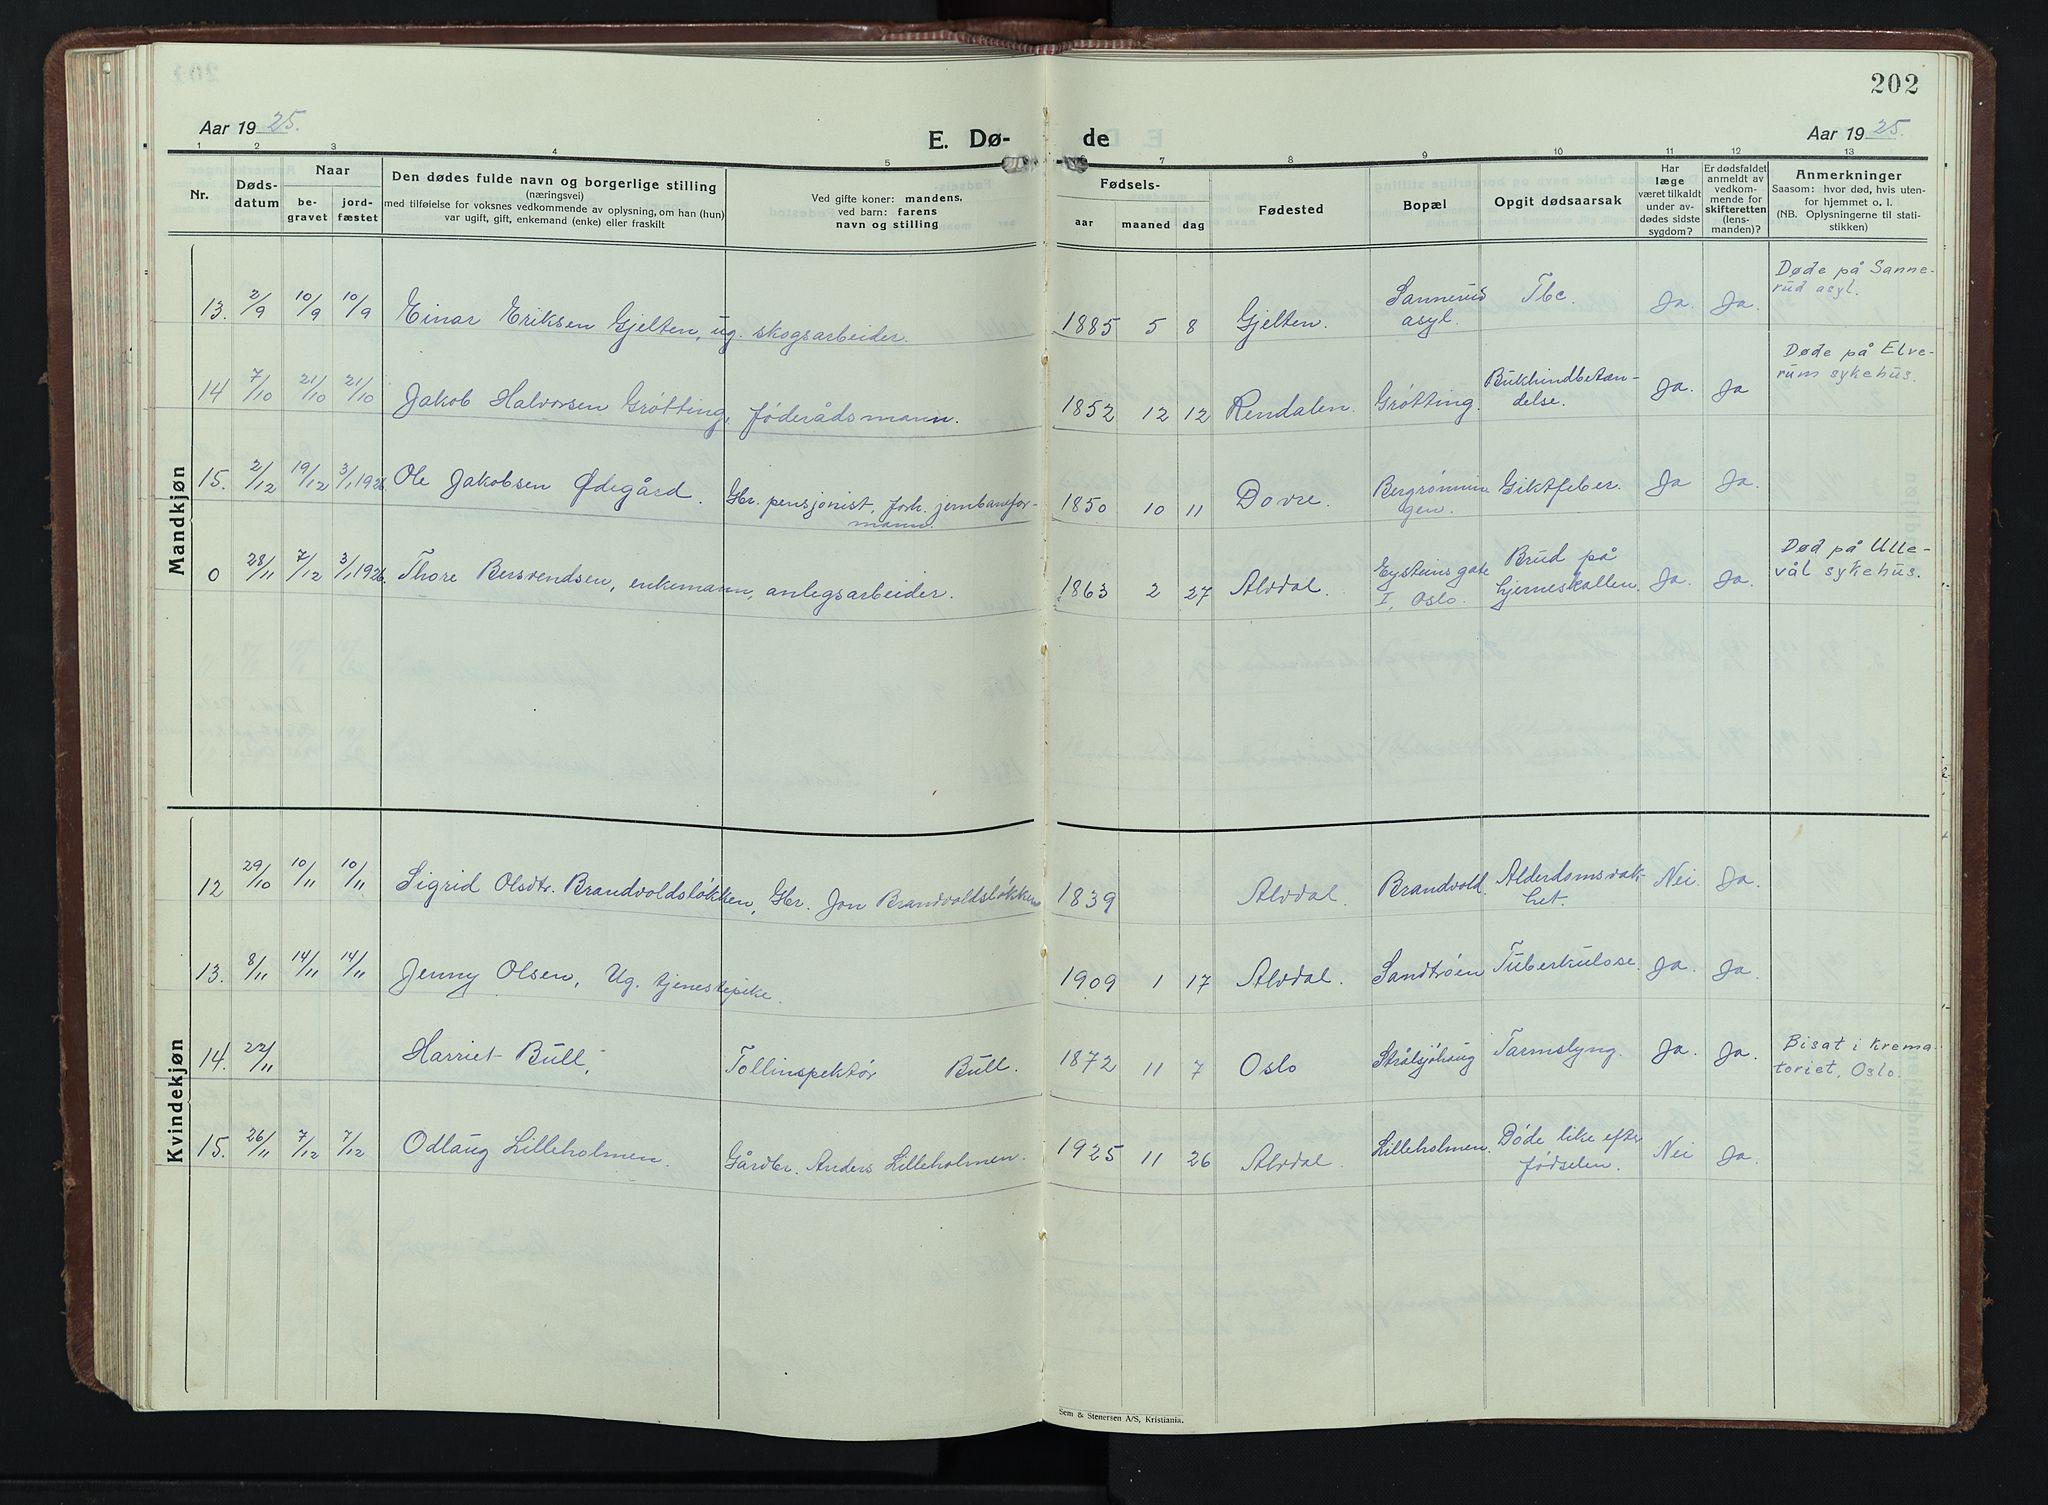 202
Aar 1925.
E. Dø-
de
Aar 1925.
1 2 3 4 5 6 7 8 9 10 11 12 13
Nr.
Døds-
datum
Naar
be-
gravet
jord-
fæstet
Den dødes fulde navn og borgerlige stilling
(næringsvei)
med tilføielse for voksnes vedkommende av oplysning, om han (hun)
var ugift, gift, enkemand (enke) eller fraskilt
Ved gifte koner: mandens,
ved barn: farens
navn og stilling
Fødsels-
aar maaned dag
Fødested
Bopæl
Opgit dødsaarsak
Har
læge
været tilkaldt
under av-
dødes sidste
sygdom?
Er dødsfaldet
anmeldt av
vedkom-
mende for
skifteretten
(lens-
manden)?
Anmerkninger
Saasom: hvor død, hvis uten-
for hjemmet o. l.
(NB. Oplysningerne til stati-
stikken)
Mandkjøn
13. 2/9 10/9 10/9 Einar Eriksen Gjelten, ug. skogsarbeider. 1885 5 8 Gjelten. Sannerud
asyl. Tbc. Ja. Ja. Døde på Sanne-
rud asyl.
14 7/10 21/10 21/10 Jakob Halvorsen Grøtting, føderådsmann. 1852 12 12 Rendalen. Grøtting. Bukhindbetæn-
delse. Ja. Ja Døde på Elve-
rum sykehus.
15. 2/12 19/12 3/1 1926. Ole Jakobsen Ødegård. Gbr. pensjonist, forh. jernbanefor-
mann. 1850 10 11 Dovre Bergrønnin
gen. Giktfeber. Ja Ja.
0 28/11 7/12 3/1 1926. Thore Bersvendsen, enkemann, anlegsarbeider. 1863 2 27 Alvdal. Eysteinsgate
I, Oslo. Brud på
hjerneskallen. Ja. Ja. Død på Ulle-
vål sykehus.
Kvindekjøn
12 29/10 10/11 10/11 Sigrid Olsdtr. Brandvoldsløkken, Gbr. Jon Brandvoldsløkken 1839 Alvdal. Brandvold. Alderdomsvak-
het. Nei. Ja.
13. 8/11 14/11 14/11 Jenny Olsen, Ug. tjenestepike. 1909 1 17 Alvdal. Sandtrøen Tuberkulose. Ja. Ja.
14. 22/11 Harriet Bull, Tollinspektør Bull. 1872 11 7 Oslo Strålsjøhaug Tarmslyng. Ja. Ja. Bisat i Krema-
toriet, Oslo.
15. 26/11 7/12 7/12 Odlaug Lilleholmen. Gårdbr. Anders Lilleholmen. 1925 11 26 Alvdal. Lilleholmen. Døde like efter
fødselen. Nei Ja.
Sem & Stenersen A/S, Kristiania.